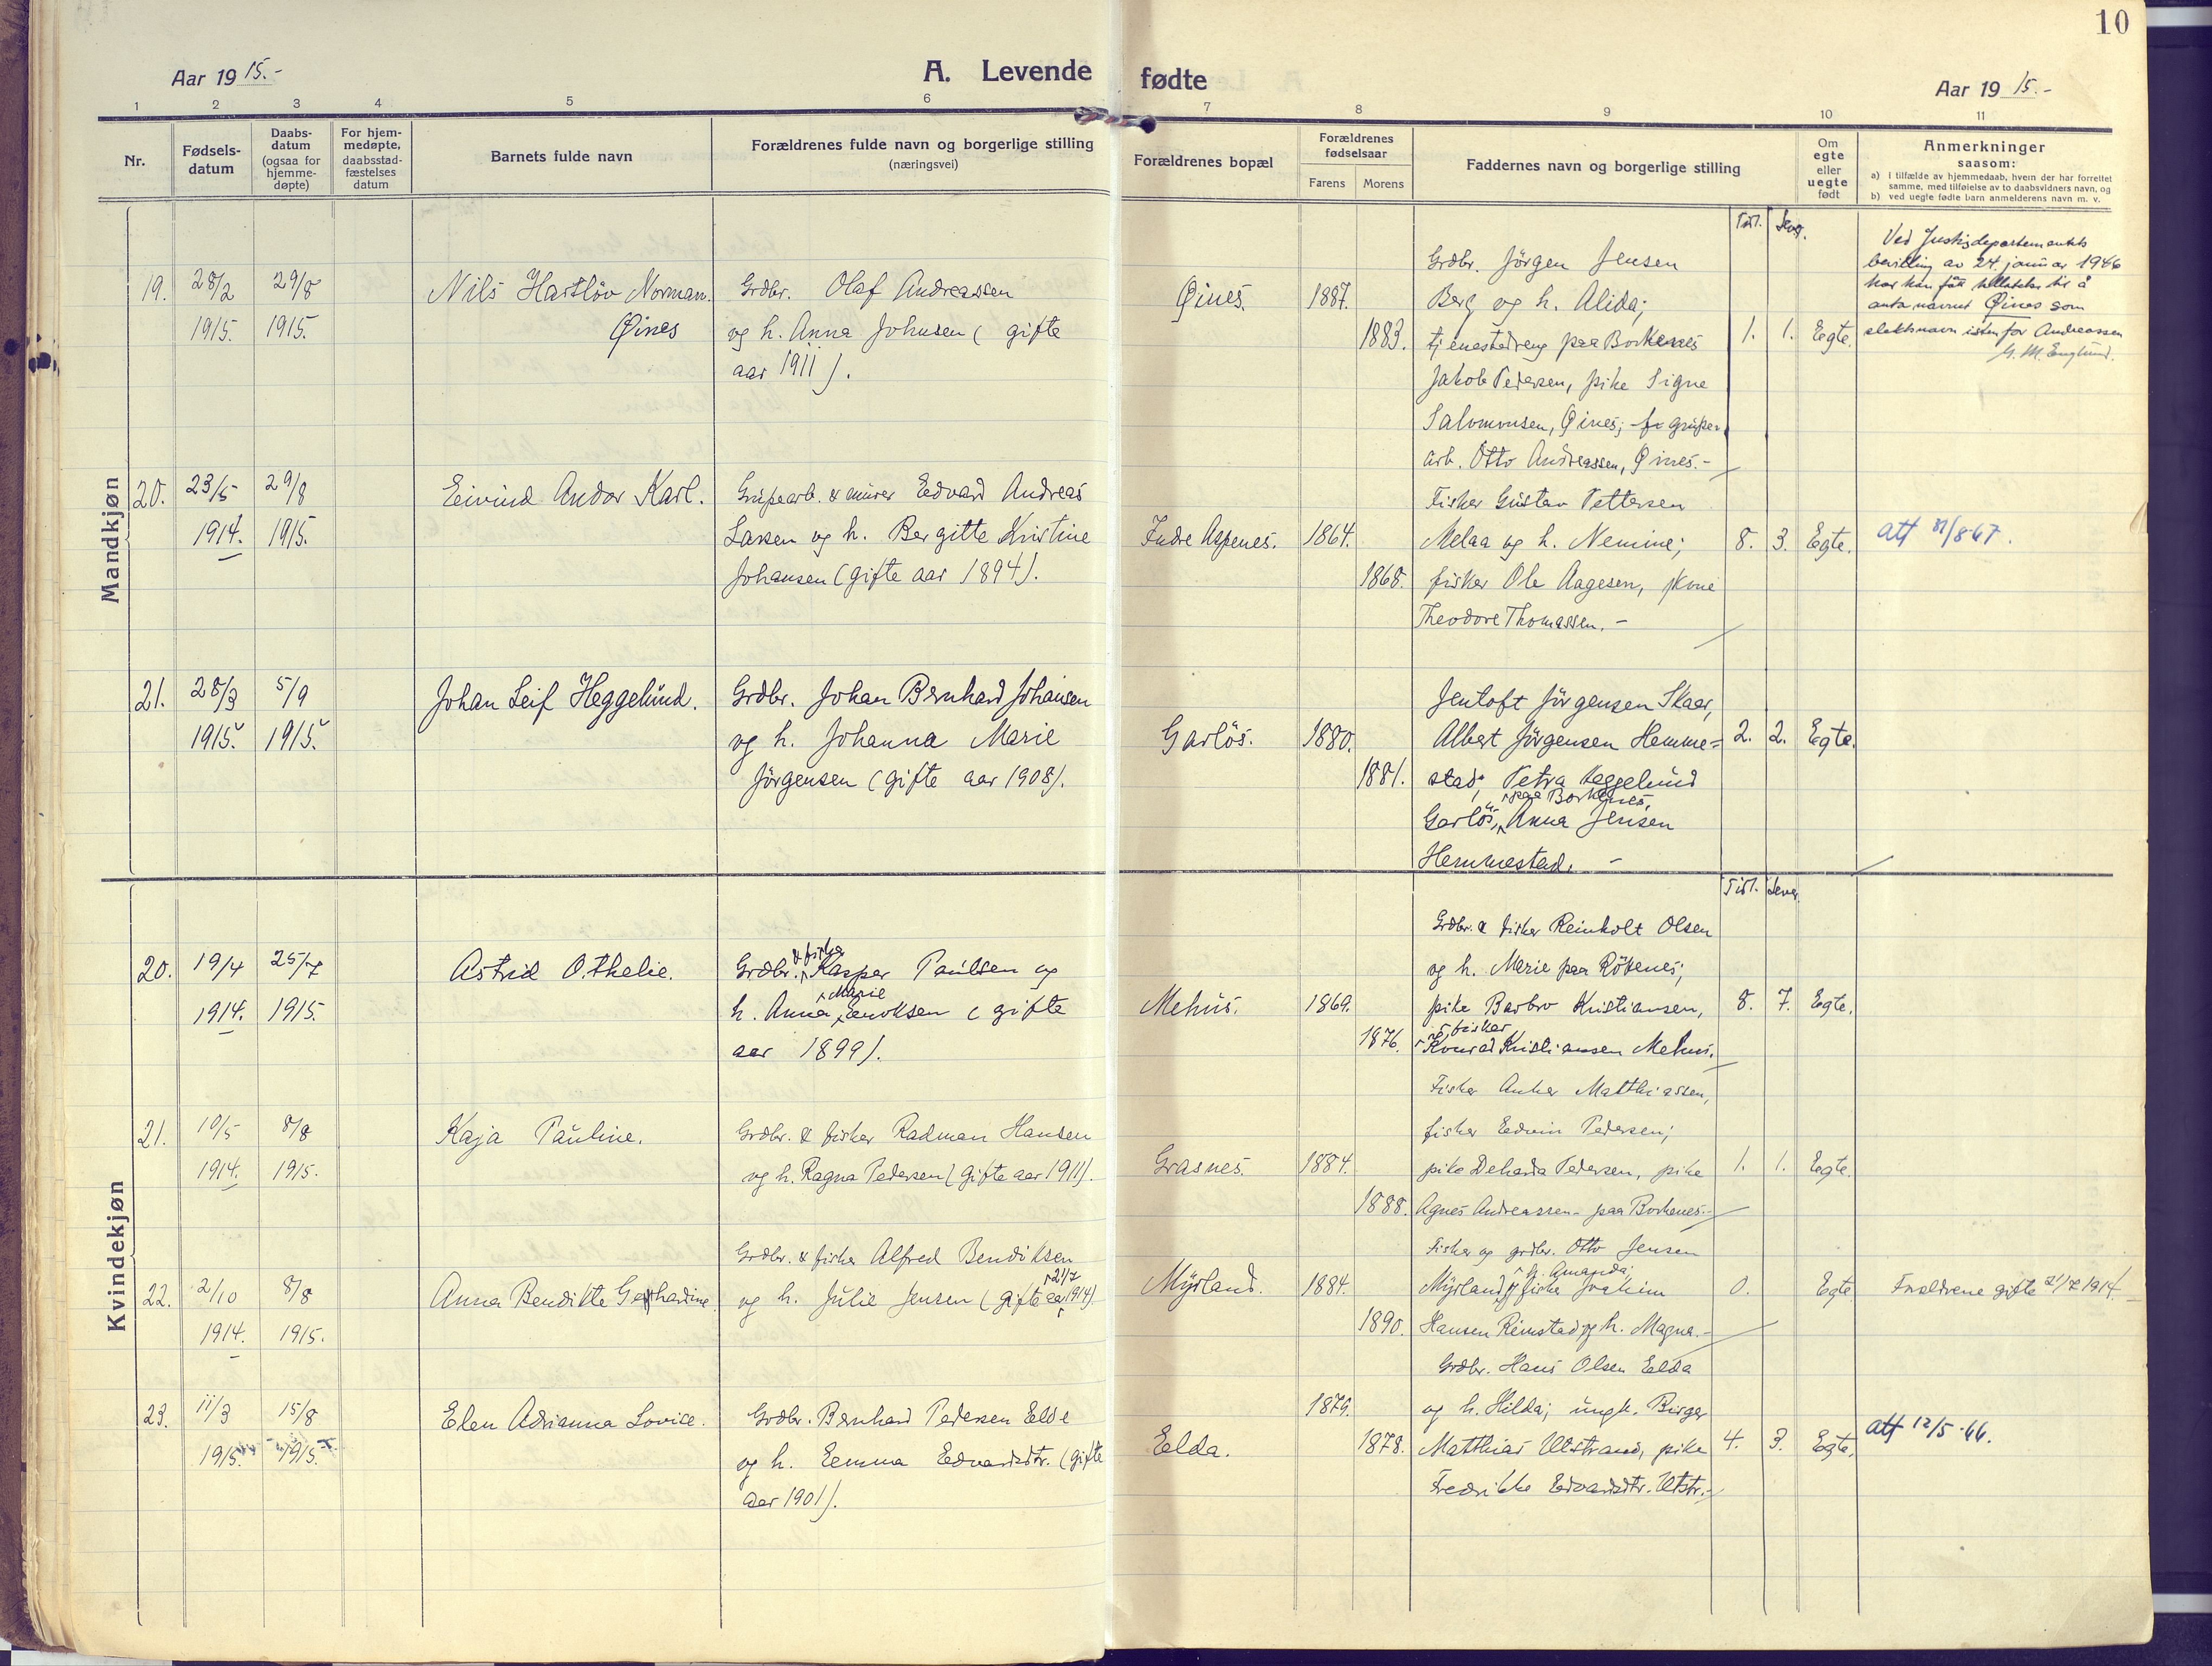 10
Aar 19 15.-
A. Levende fødte
Aar 19 15.-
1 2 3 4 5 6 7 8 9 10 11
Nr.
Fødsels-
datum
Daabs-
datum
(ogsaa for
hjemme-
døpte)
For hjem-
medøpte,
daabsstad-
fæstelses
datum
Barnets fulde navn
Forældrenes fulde navn og borgerlige stilling
(næringsvei)
Forældrenes bopæl
Forældrenes
fødselsaar
Farens Morens
Faddernes navn og borgerlige stilling
Om
egte
eller
uegte
født
Anmerkninger
saasom:
a) I tilfælde av hjemmedaab, hvem der har forrettet
samme, med tilføielse av to daabsvidners navn, og
b) ved uegte fødte barn anmelderens navn m. v.
Mandkjøn
Tidl. Lever.
19. 28/2 29/8
1915. 1915.
Nils Hartløv Norman.
Øines
Grdbr. Olaf Andreassen
og h. Anna Johnsen ( gifte
aar 1911 ).
Øines.
1887.
1883.
Grdbr. Jörgen Jensen
Berg og h. Alida;
tjenestedreng paa Borkenes
Jakob Pedersen, pike Signe
Salomonsen, Øines; gruber
arb. Otto Andreassen, Øines.-
1. 1. Egte.
Ved Justisdepartementets
bevilling av 24. januar 1946
har han fått tillatelse til å
anta navnet Øines som
slektsnavn istenfor Andreassen
G. M. Englund.
20. 23/5 29/8
1914. 1915.
Eivind Andor Karl.
Grubearb. & murer Edvard Andreas
Larsen og h. Bergitte Kristine
Johansen (gifte aar 1894).
Indre Aspenes.
1864.
1868.
Fisker Gustav Pettersen
Melaa og h. Nemine;
fisker Ole Aagesen, kone
Theodore Thomassen. -
8. 3. Egte.
Att 31/8-67.
21. 28/3 5/9
1915. 1915.
Johan Leif Heggelund.
Grdbr. Johan Bernhard Johansen
og h. Johanna Marie
Jörgensen (gifte aar 1908).
Garlös.
1880.
1881.
Jentoft Jörgensen Skaar,
Albert Jörgensen Hemme=
stad; Petra Heggelund
paa Borkenes,
Garlös, Anna Jensen
Hemmestad. -
2. 2. Egte.
Kvindekjøn
Tidl. Lever.
20. 19/4 25/7
1914. 1915.
Astrid Othelie.
& fisker
Grdbr. Kasper Paulsen og
Marie
h. Anna Enoksen ( gifte
aar 1899).
Mehus.
1869.
1876.
Grdbr. & fisker Reinholt Olsen
og h. Marie paa Rökenes;
pike Barbro Kristiansen,
fisker
Konrad Kristiansen Mehus.
8. 7. Egte.
21. 10/5 8/8
1914. 1915.
Kaja Pauline.
Grdbr. & fisker Radman Hansen
og h. Ragna Pedersen (gifte aar 1911).
Grasnes.
1884.
1888.
Fisker Anker Matthiassen,
fisker Edvin Pedersen;
pike Pedersen, pike
Agnes Andreassen - paa Borkenes.-
1. 1. Egte.
22. 2/10 8/8
1914. 1915.
Anna Bendikte Gerhardine.
Grdbr. & fisker Alfred Bendiksen
21/7
og h. Julie Jensen (gifte aar 1914).
Myrland.
1884.
1890.
Fisker og grdbr. Otto Jensen
h. Amanda;
Myrland, fisker Joakim
Hansen Rimstad og h. Magna.-
0. Egte.
Forældrene gifte 21/7 1914.
23. 11/3 15/8
1915. 1915.
Elen Adrianna Lovise.
Grdbr. Bernhard Pedersen Elde
og h. Emma Edvardsdtr. (gifte
aar 1901).
Elda.
1879.
1878.
Grdbr. Hans Olsen Elda
og h. Hilda; ungk. Birger
Matthias Utstrand, pike
Fredrikke Edvardsdtr. Utstr.-
4. 3. Egte.
Att 12/5-66.